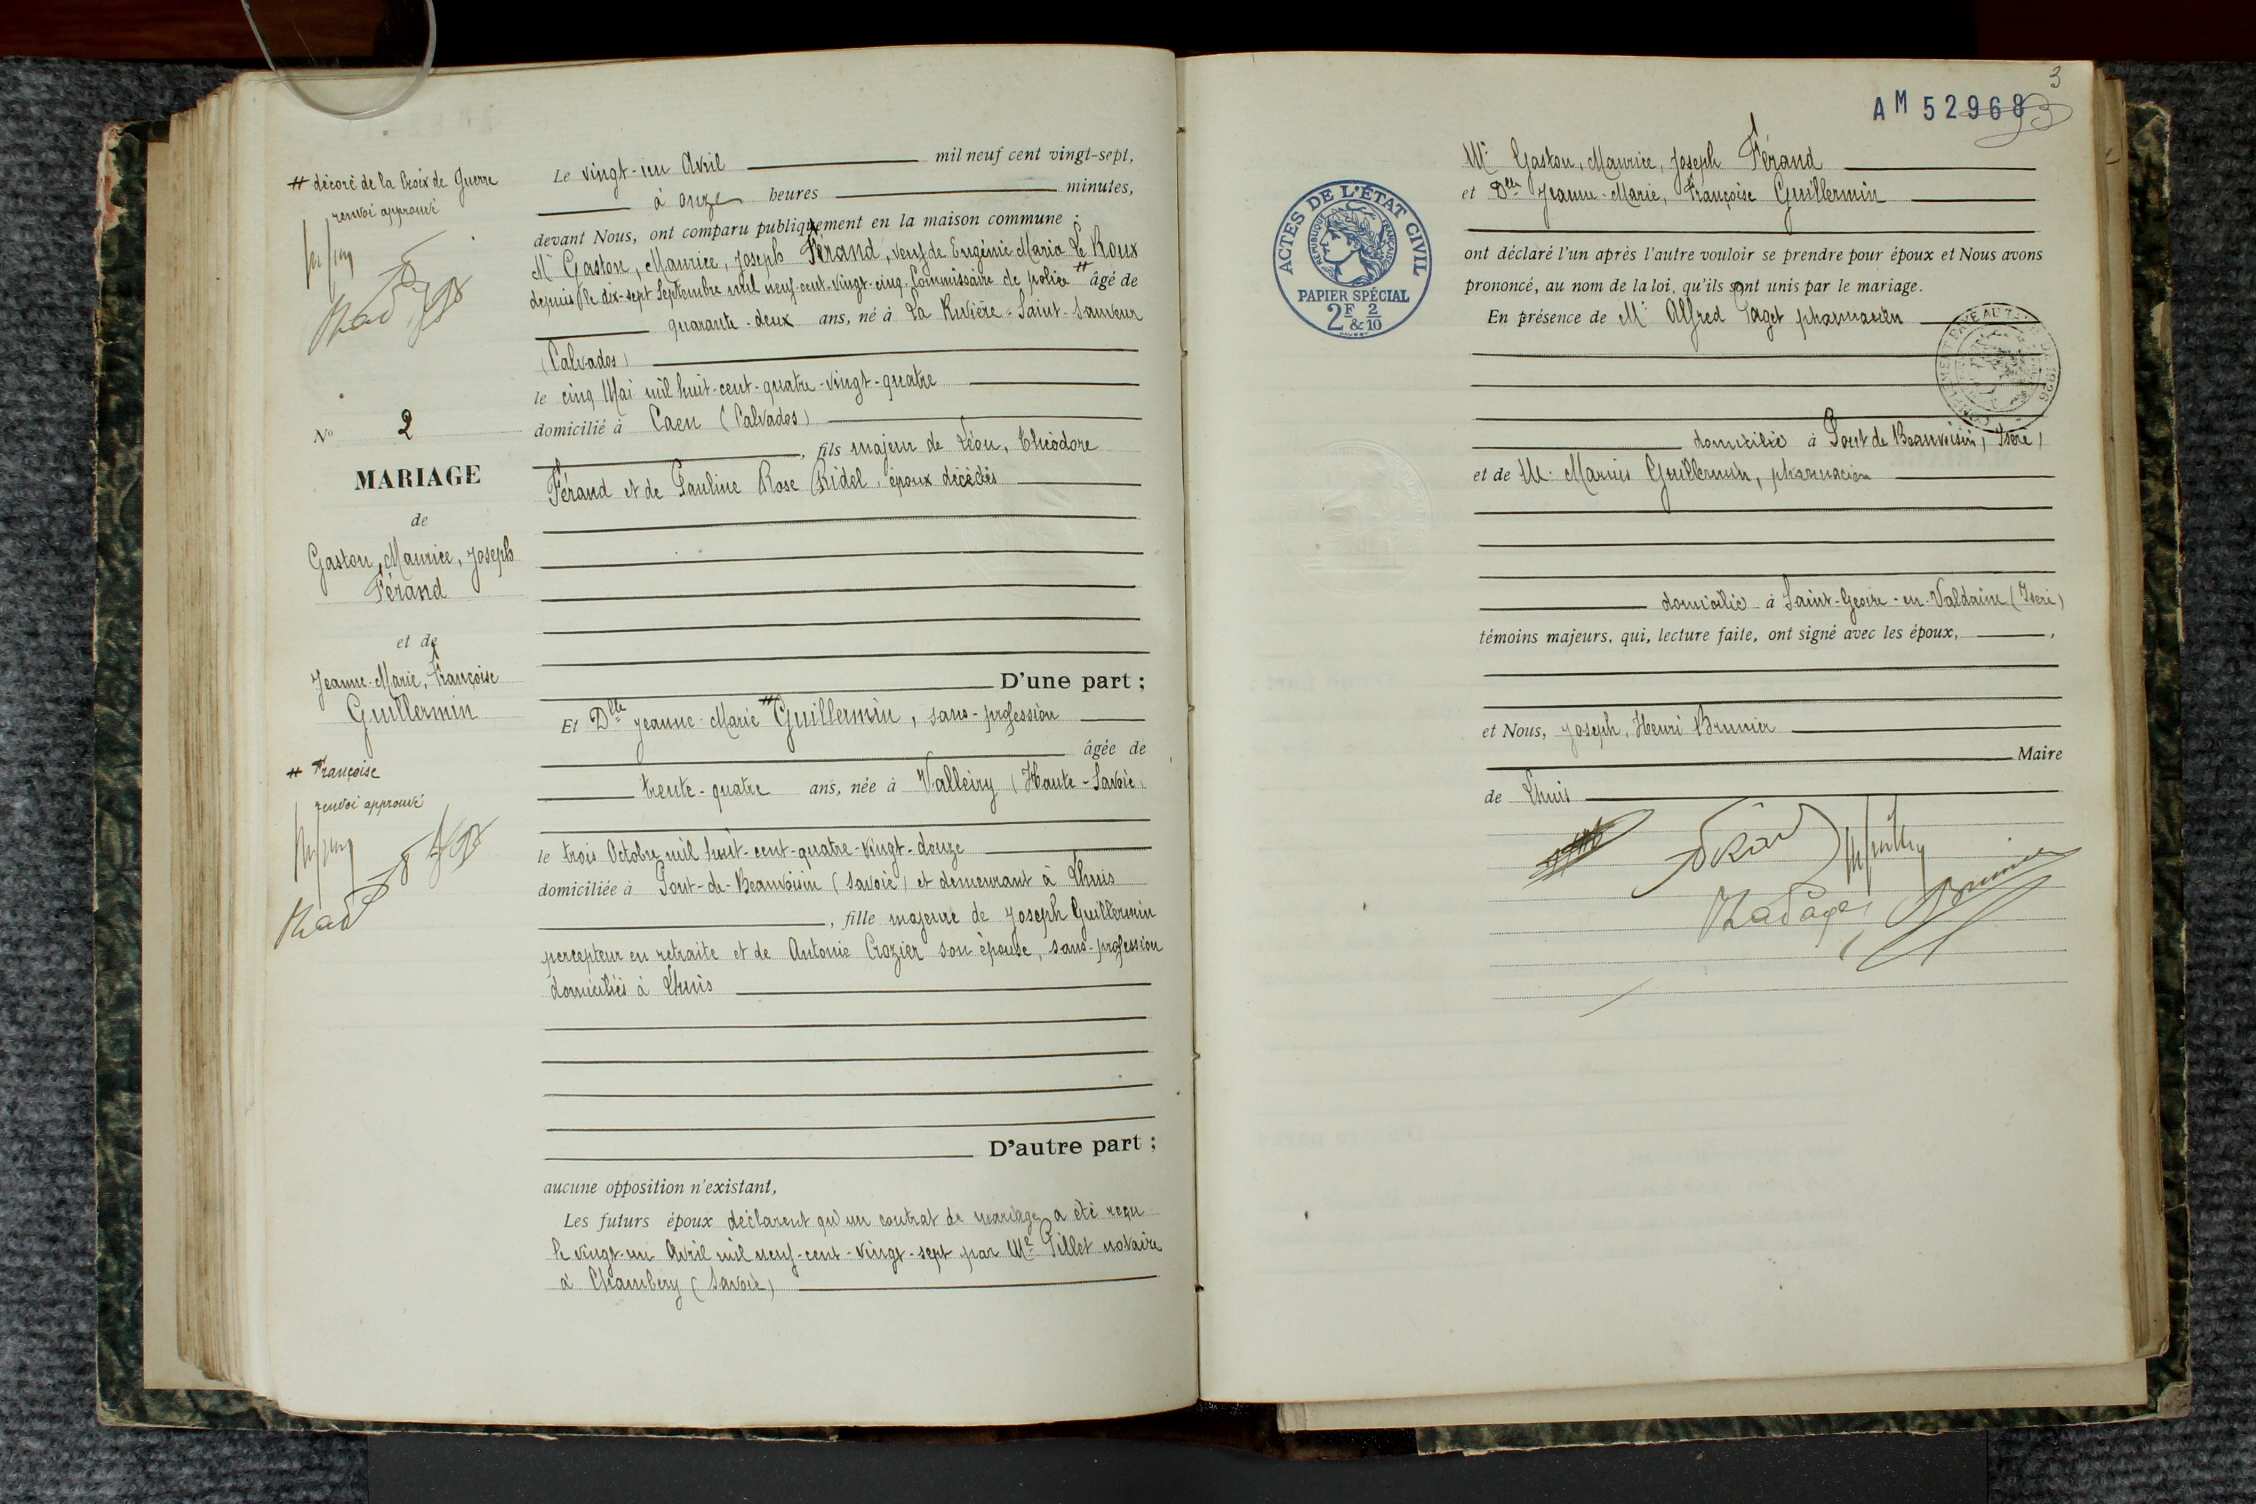 # décoré de la Croix de Guerre
renvoi approuvé
No 2
MARIAGE
de
Gaston, Maurice, Joseph
Férand
et de
Jeanne-Marie, Françoise
Guillermin
# Françoise
renvoi approuvé
Le vingt-un Avril mil neuf cent vingt-sept,
à onze heures minutes,
devant Nous, ont comparu publiquement en la maison commune :
Mr Gaston, Maurice, Joseph Férand, veuf de Eugénie Maria Le Roux
depuis le dix-sept Septembre mil neuf-cent-vingt-cinq, Commissaire de police # âgé de
quarante-deux ans, né à La Rivière-Saint-Sauveur
(Calvados)
le cinq Mai mil huit-cent-quatre-vingt-quatre
domicilié à Caen (Calvados)
, fils majeur de Léon, Théodore
Férand et de Pauline Rose Ridel, époux décédés
D'une part ;
Et Dlle Jeanne-Marie # Guillermin, sans-profession
âgée de
trente-quatre ans, née à Valleiry (Haute-Savoie)
le trois Octobre mil huit-cent-quatre-vingt-douze
domiciliée à Pont-de-Beauvoisin (Savoie) et demeurant à Lhuis
, fille majeure de Joseph Guillermin
percepteur en retraite et de Antonie Crozier son épouse, sans-profession
domiciliés à Lhuis
D'autre part ;
aucune opposition n'existant,
Les futurs époux déclarent qu'un contrat de mariage a été reçu
le vingt-un Avril mil neuf-cent-vingt-sept par Me Pillet notaire
à Chambéry (Savoie)
3
AM 52968
93
ACTES DE L'ÉTAT CIVIL
RÉPUBLIQUE FRANÇAISE
PAPIER SPÉCIAL
2F & 2/10
Mr Gaston, Maurice, Joseph Férand
et Dlle Jeanne-Marie, Françoise Guillermin
ont déclaré l'un après l'autre vouloir se prendre pour époux et Nous avons
prononcé, au nom de la loi, qu'ils sont unis par le mariage.
En présence de Mr Alfred Paget pharmacien
domicilié à Pont de Beauvoisin (Isère)
et de Mr Marius Guillermin, pharmacien
domicilié à Saint-Geoire-en-Valdaine (Isère)
témoins majeurs, qui, lecture faite, ont signé avec les époux, ,
et Nous, Joseph, Henri Brunier
Maire
de Lhuis
Brunier